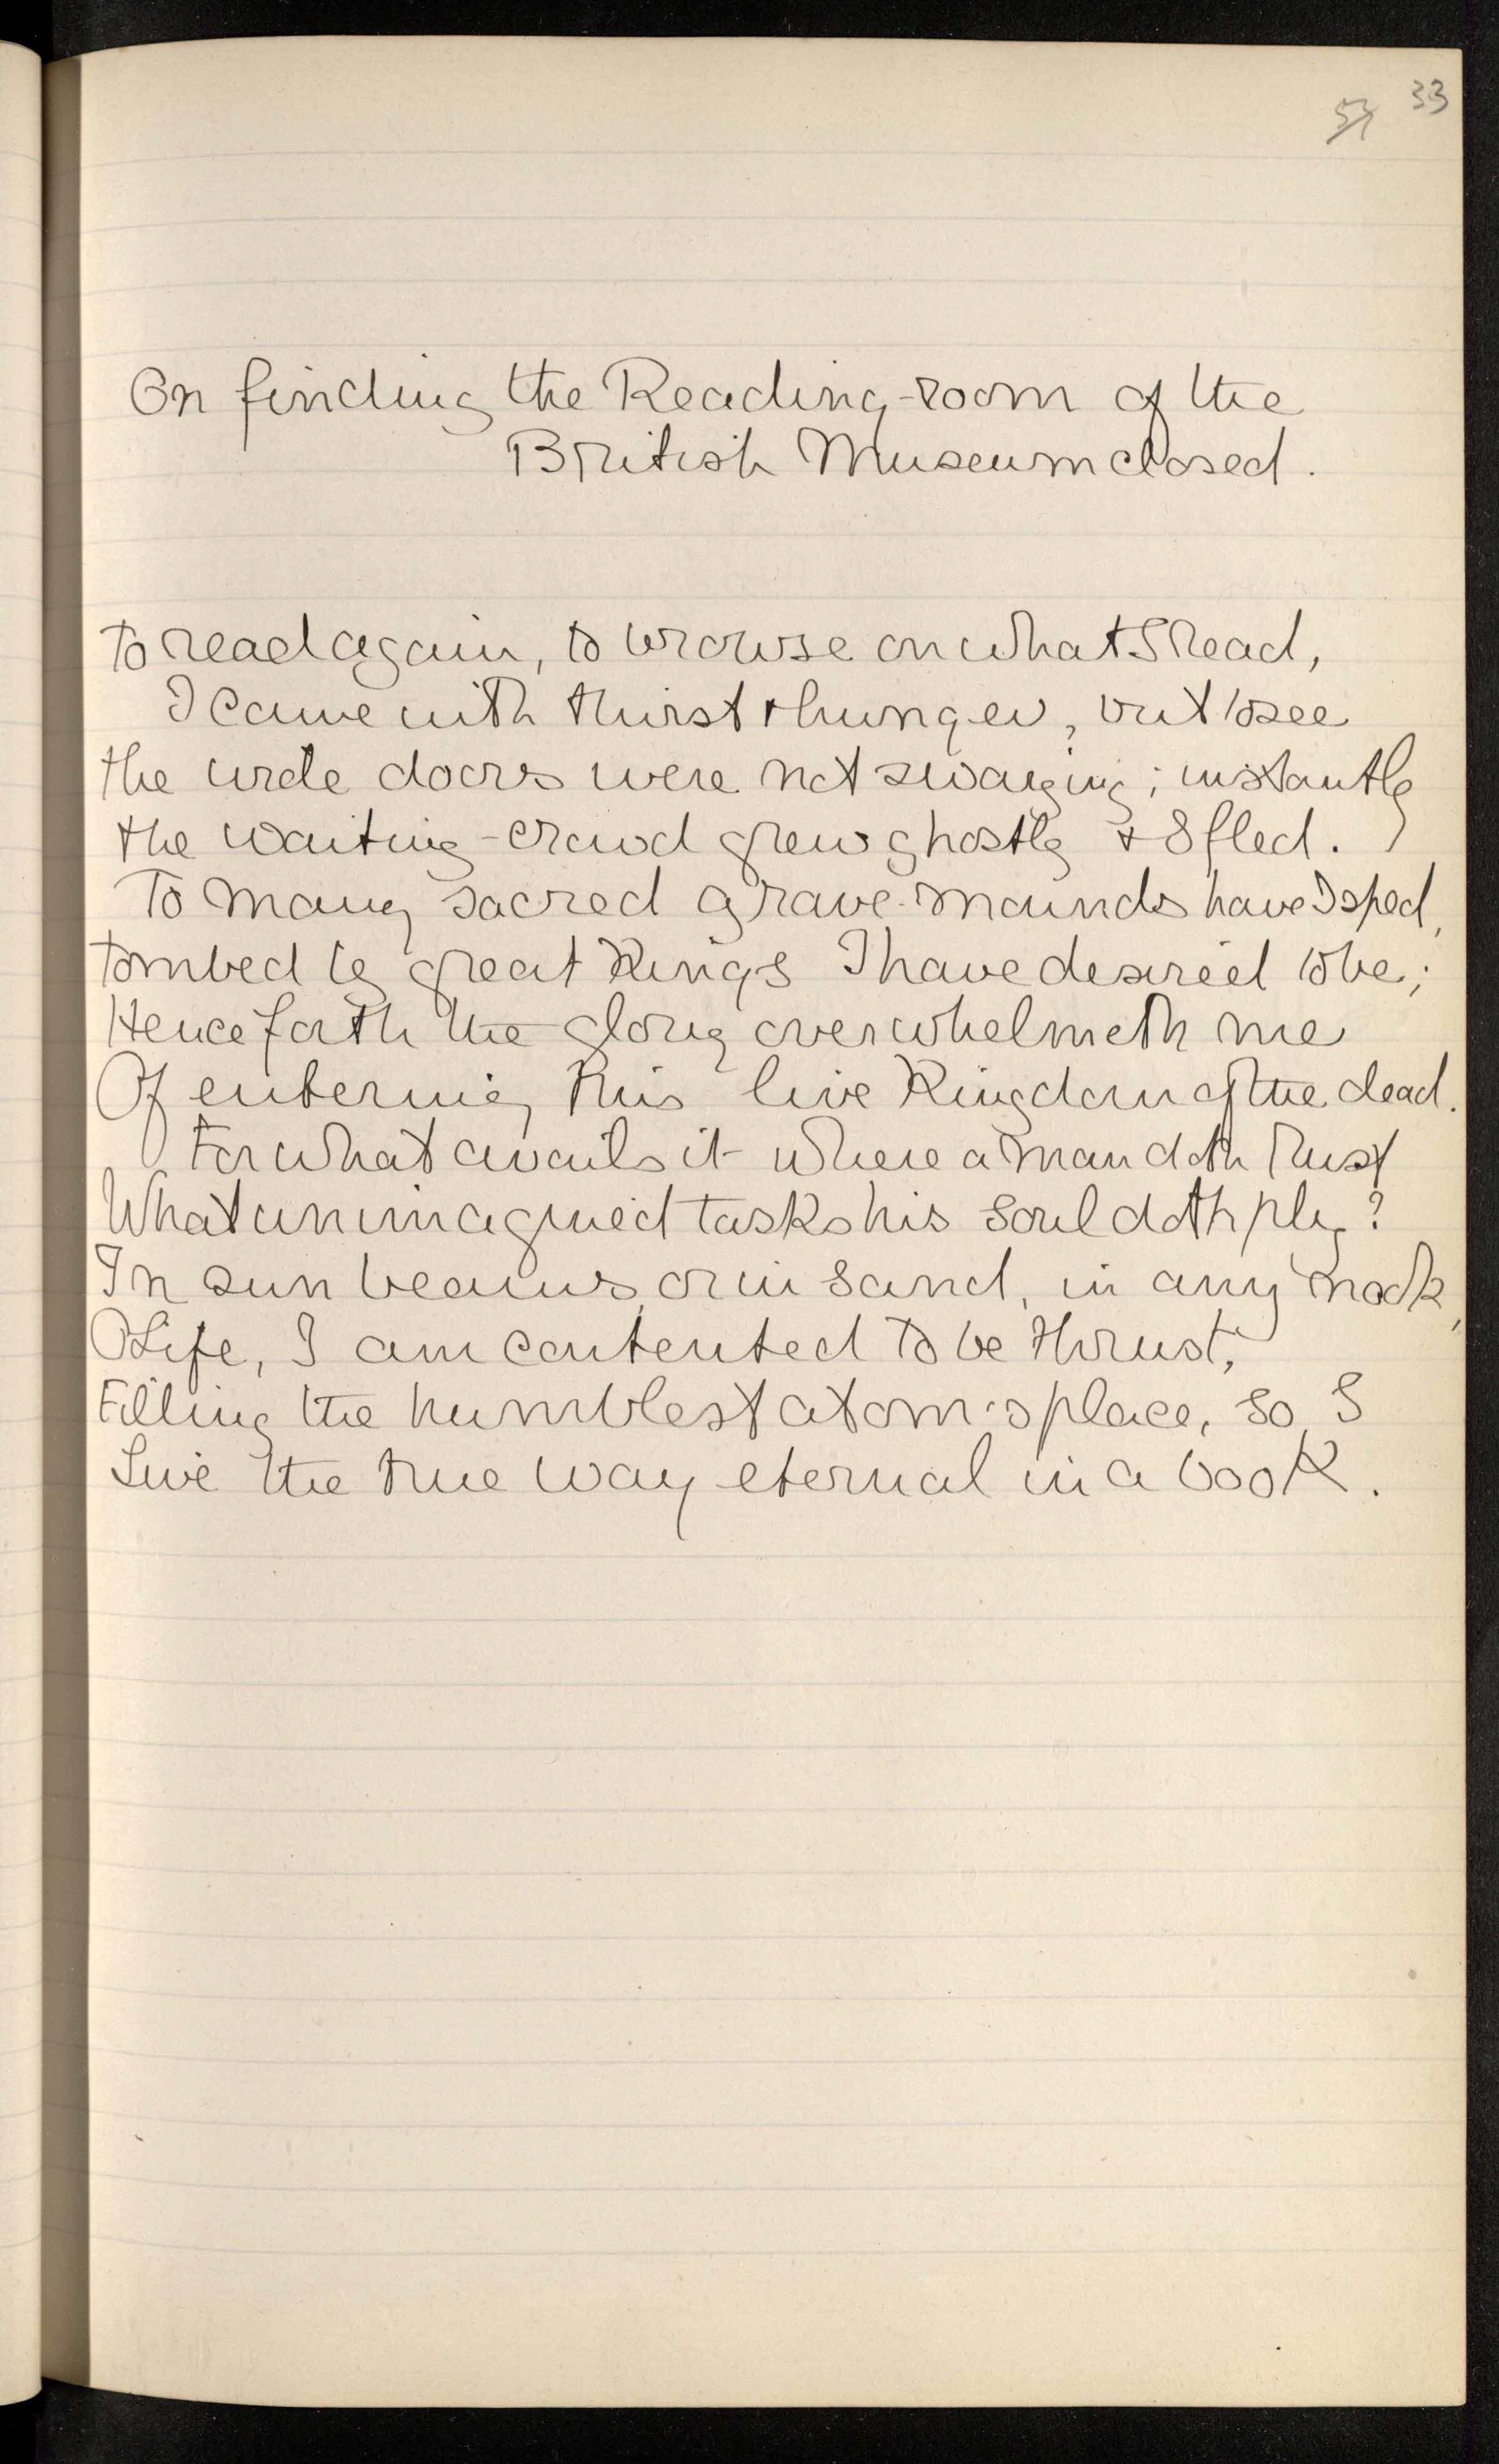 33
53
On finding the Reading-room of the
British Museum closed.
To read again, to browse on what I read,
I came with thirst & hunger, but to see
the wide doors were not swinging; instantly
the waiting-crowd grew ghostly & I fled.
To many sacred grave-mounds have I sped,
tombed by great Kings I have desired to be;
Henceforth the glory overwhelmeth me
Of entering this live Kingdom of the dead.
For what avails it where a man doth rust
What unimagined tasks his soul doth ply?
In sunbeams, or in sand, in any nook,
O Life, I am contented to be thrust,
Filling the humblest atom's place, so I
Live the true way eternal in a book.